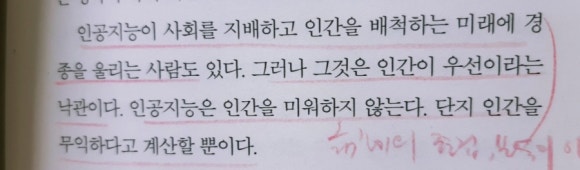 인공지능이 사회를 지배하고 인간을 배척하는 미래에 경
종을 울리는 사람도 있다. 그러나 그것은 인간이 우선이라는
낙관이다. 인공지능은 인간을 미워하지 않는다. 단지 인간을
무익하다고 계산할 뿐이다.